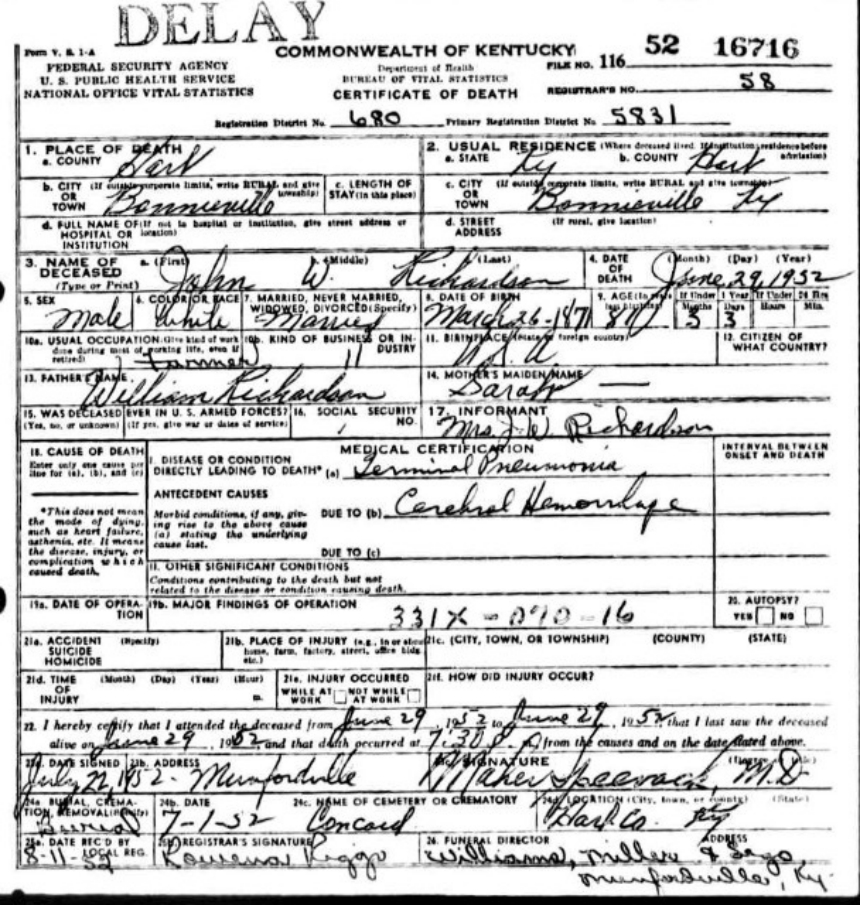 DELAY
Form V. S. 1-A
COMMONWEALTH OF KENTUCKY
FILE NO. 116 52 16716
FEDERAL SECURITY AGENCY
U. S. PUBLIC HEALTH SERVICE
NATIONAL OFFICE VITAL STATISTICS
Department of Health
BUREAU OF VITAL STATISTICS
CERTIFICATE OF DEATH
REGISTRAR'S NO. 58
Registration District No. 680 Primary Registration District No. 5831
1. PLACE OF DEATH
a. COUNTY Hart
2. USUAL RESIDENCE (Where deceased lived. If institution: residence before admission)
a. STATE Ky b. COUNTY Hart
b. CITY (If outside corporate limits, write RURAL and give township)
OR
TOWN Bonnieville
c. LENGTH OF
STAY (in this place)
c. CITY (If outside corporate limits, write RURAL and give township)
OR
TOWN Bonnieville Ky
d. FULL NAME OF (If not in hospital or institution, give street address or location)
HOSPITAL OR
INSTITUTION
d. STREET (If rural, give location)
ADDRESS
3. NAME OF DECEASED
(Type or Print)
a. (First) b. (Middle) (Last)
John W. Richardson
4. DATE OF DEATH (Month) (Day) (Year)
June 29, 1952
5. SEX
Male
6. COLOR OR RACE
White
7. MARRIED, NEVER MARRIED, WIDOWED, DIVORCED (Specify)
Married
8. DATE OF BIRTH
March 26-1871
9. AGE (In years last birthday) If Under 1 Year If Under 24 Hrs
Months Days Hours Min.
81 3 3
10a. USUAL OCCUPATION (Give kind of work done during most of working life, even if retired)
Farmer
10b. KIND OF BUSINESS OR INDUSTRY
11
11. BIRTHPLACE (State or foreign country)
12. CITIZEN OF WHAT COUNTRY?
13. FATHER'S NAME
William Richardson
14. MOTHER'S MAIDEN NAME
Sarah —
15. WAS DECEASED EVER IN U. S. ARMED FORCES?
(Yes, no, or unknown) (If yes, give war or dates of service)
16. SOCIAL SECURITY NO.
17. INFORMANT
Mrs. J. W. Richardson
18. CAUSE OF DEATH
Enter only one cause per line for (a), (b), and (c)
MEDICAL CERTIFICATION
INTERVAL BETWEEN ONSET AND DEATH
I. DISEASE OR CONDITION
DIRECTLY LEADING TO DEATH* (a) Terminal Pneumonia
*This does not mean the mode of dying, such as heart failure, asthenia, etc. It means the disease, injury, or complication which caused death.
ANTECEDENT CAUSES
Morbid conditions, if any, giving rise to the above cause (a) stating the underlying cause last.
DUE TO (b) Cerebral Hemorrhage
DUE TO (c)
II. OTHER SIGNIFICANT CONDITIONS
Conditions contributing to the death but not related to the disease or condition causing death.
19a. DATE OF OPERATION
19b. MAJOR FINDINGS OF OPERATION
331X - 090 - 16
20. AUTOPSY?
YES NO
21a. ACCIDENT (Specify)
SUICIDE
HOMICIDE
21b. PLACE OF INJURY (e.g., in or about home, farm, factory, street, office bldg. etc.)
21c. (CITY, TOWN, OR TOWNSHIP) (COUNTY) (STATE)
21d. TIME (Month) (Day) (Year) (Hour)
OF
INJURY m.
21e. INJURY OCCURRED
WHILE AT WORK NOT WHILE AT WORK
21f. HOW DID INJURY OCCUR?
22. I hereby certify that I attended the deceased from June 29, 1952 to June 29, 1952 that I last saw the deceased
alive on June 29, 1952 and that death occurred at 7:30 P. m, from the causes and on the date stated above.
DATE SIGNED
July 22, 1952
23b. ADDRESS
Munfordville
SIGNATURE
Maher Speevack, M.D
24a. BURIAL, CREMATION, REMOVAL (Specify)
Burial
24b. DATE
7-1-52
24c. NAME OF CEMETERY OR CREMATORY
Concord
24d. LOCATION (City, town, or county) (State)
Hart Co. Ky
25a. DATE REC'D BY LOCAL REG.
8-11-52
25b. REGISTRAR'S SIGNATURE
Rowena Riggs
26. FUNERAL DIRECTOR ADDRESS
Williams, Miller & Sego,
Munfordville, Ky.